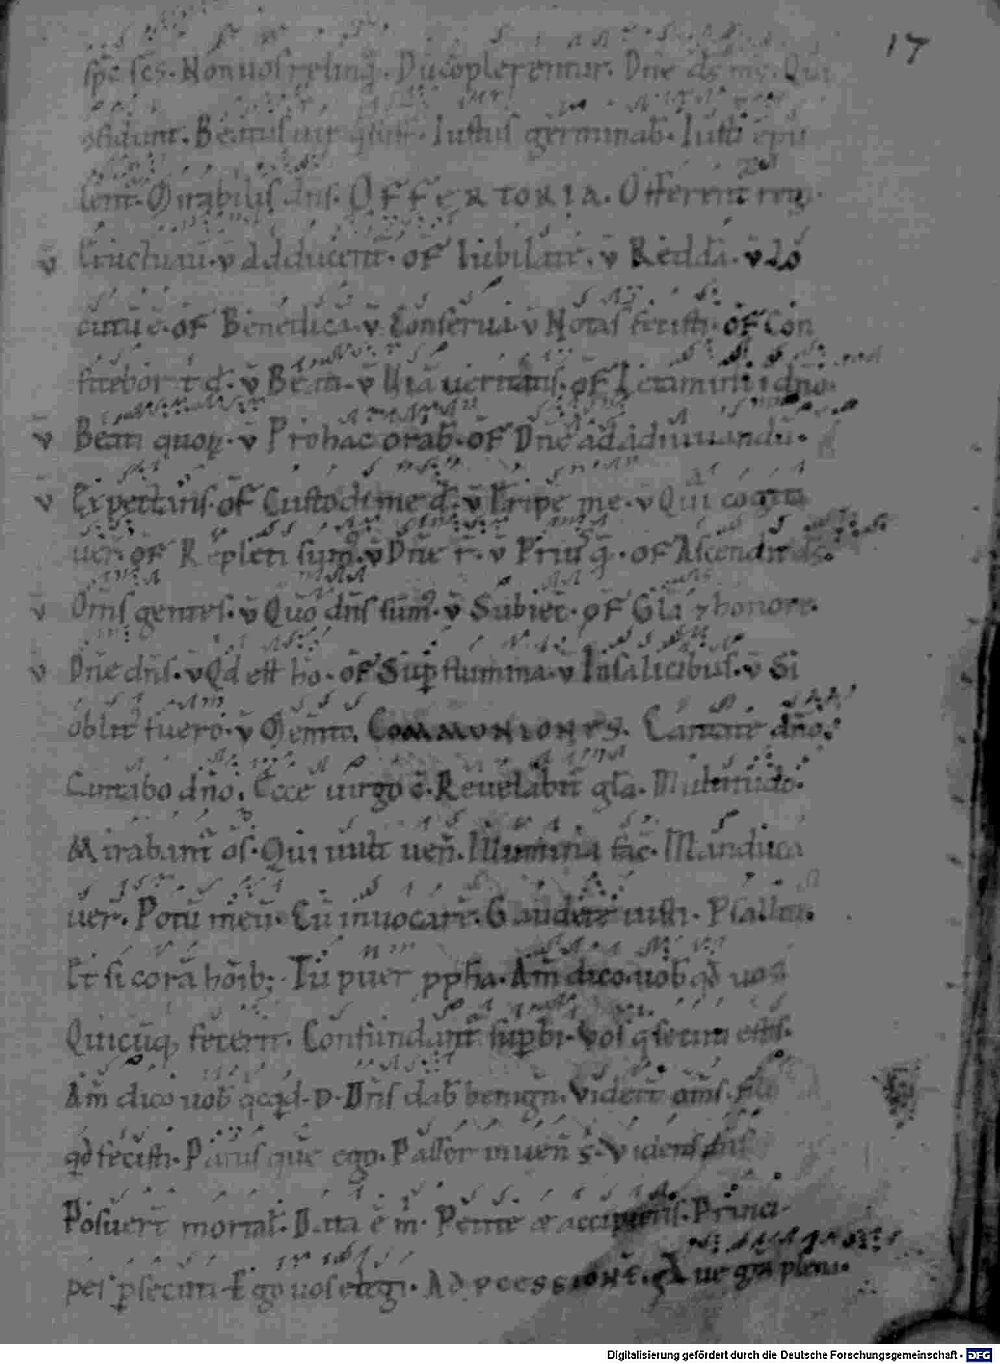 17
sp̄c sc̄s. Non uos relinq̄. Dū cōplerentur. Dn̄e ds̄ ms̄. Qui
. Beatus uir . Iustus germinab̄. Iusti epu
lent̄. Mirabilis dn̄s. OFFERTORIA. Offerent reg.
v̄ Eructuau̅. v̄ Adducent̄. of̄ Iubilate. v̄ Reddā. v̄ Lo
cutū ē. of̄ Benedica. v̄ Conserua v̄ Notas fecisti. of̄ Con
fitebor t̄ d̄. v̄ Beati. v̄ Uiā ueritatis. of̄ Letamini i dn̄o.
v̄ Beati quoꝝ. v̄ Pro hac orab̄. of̄ Dn̄e ad adiuuandū.
v̄ Expectans. of̄ Custodi me d̄. v̄ Eripe me. v̄ Qui cogita
uer̄. of̄ Repleti sum̄. v̄ Dn̄e r̄. v̄ Priusq̄. of̄ Ascendit ds̄.
v̄ Om̄s gentes. v̄ Quō dn̄s sūm̄. v̄ Subiec̄. of̄ Glā ⁊ honore.
v̄ Dn̄e dn̄s. v̄ Qd̄ est hō. of̄ Sup̄ flumina. v̄ In salicibus. v̄ Si
oblit̄ fuero. v̄ Mem̄to. COMMUNIONES. Cantate dn̄o.
Cantabo dn̄o. Ecce uirgo c̄. Reuelabit̄ glā. Multitudo.
Mirabant̄ ōs. Qui uult uen̄. Illumina fac̄. Manduca
uer̄. Potū meū. Cū inuocarē. Gaudete iusti. Psallite.
Et si corā hōib;. Tu puer pph̄a. Am̄ dico uob̄ qd̄ uos
Quicūq, fecerit̄. Confundant̄ sup̄bi. Vos q̄ secuti estis.
Am̄ dico uob̄ qcqd̄. D. Dn̄s dab̄ benign̄. Viderē om̄s. Fili
qd̄ fecisti. Panis quē ego. Passer inuen̄ s̄. Videns dn̄s
Posuer̄ mortal̄. Data ē m̄. Petite & accipietis. Princi-
pes p̄secuti. Ego uos elegi. AD PCESSIONĒ. Aue gra plena.